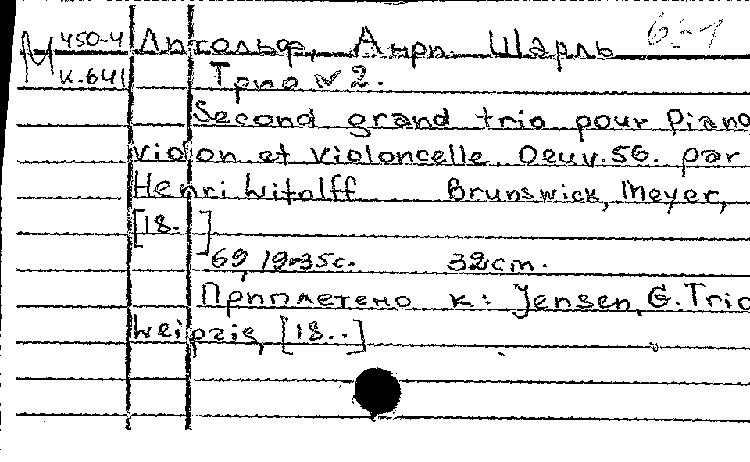 М 450-4 Литольф, Анри Шарль 6-1
к-641 Трио № 2.
Second grand trio pour piano
violon et violoncelle. Oeuv. 56. par
Henri Litolff Brunswick, Meyer,
[18. ]
69, 19-35c. 32cm.
Приплетено к: Jensen, G. Trio
Leipzig, [18..]